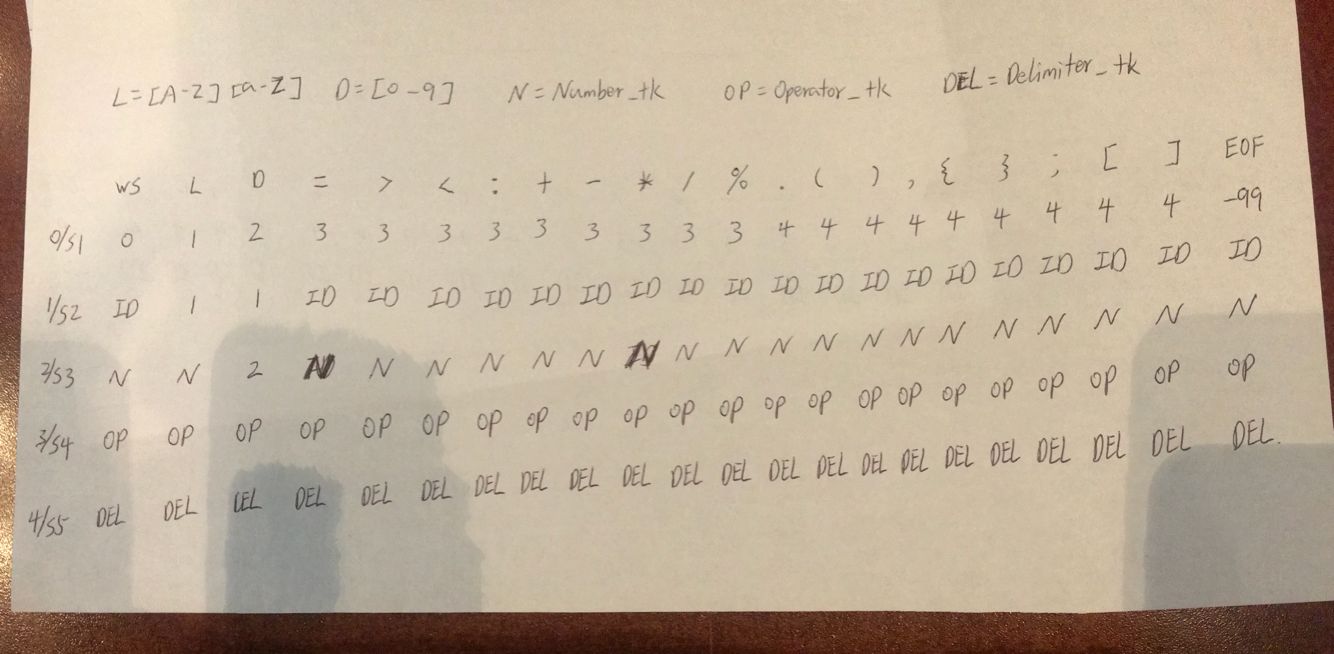 L=[A-Z][a-z] D=[0-9] N=Number_tk OP=Operator_tk DEL=Delimiter_tk
WS L D = > < : + - * / % . ( ) , { } ; [ ] EOF
0/S1 0 1 2 3 3 3 3 3 3 3 3 3 4 4 4 4 4 4 4 4 4 -99
1/S2 ID 1 1 ID ID ID ID ID ID ID ID ID ID ID ID ID ID ID ID ID ID ID
2/S3 N N 2 N N N N N N N N N N N N N N N N N N N
3/S4 OP OP OP OP OP OP OP OP OP OP OP OP OP OP OP OP OP OP OP OP OP OP
4/S5 DEL DEL DEL DEL DEL DEL DEL DEL DEL DEL DEL DEL DEL DEL DEL DEL DEL DEL DEL DEL DEL DEL.